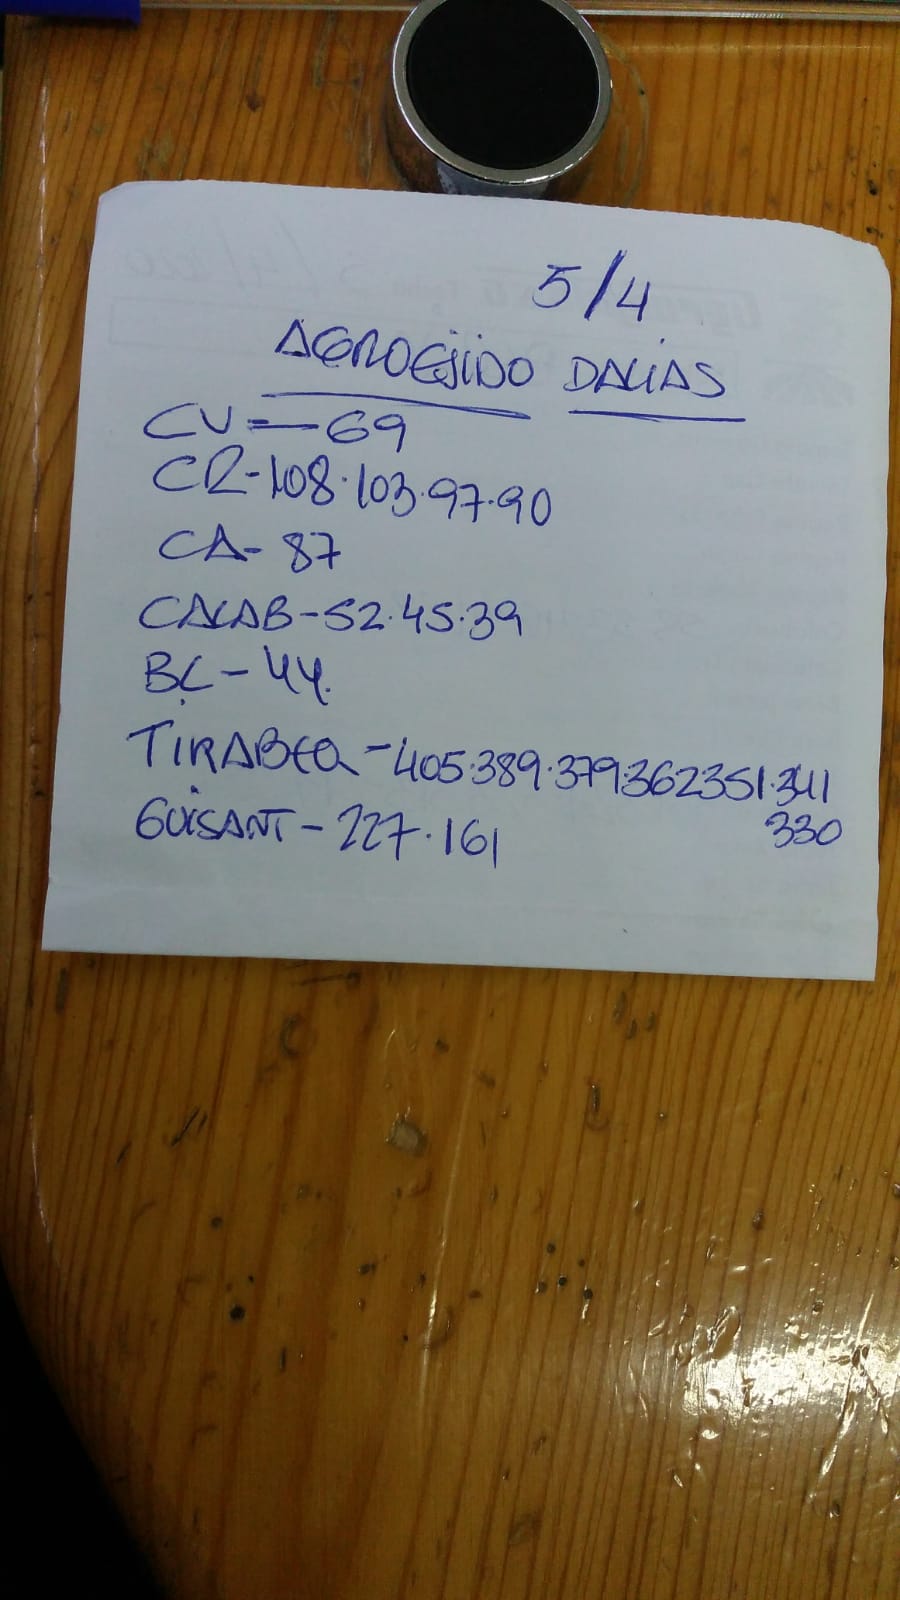 5/4
AGROEJIDO DALIAS
CV=69
CR-108.103.97.90
CA-87
CALAB-52.45.39
BC-44.
TIRABEQ-405.389.379.362351.341
330
GUISANT-227.161